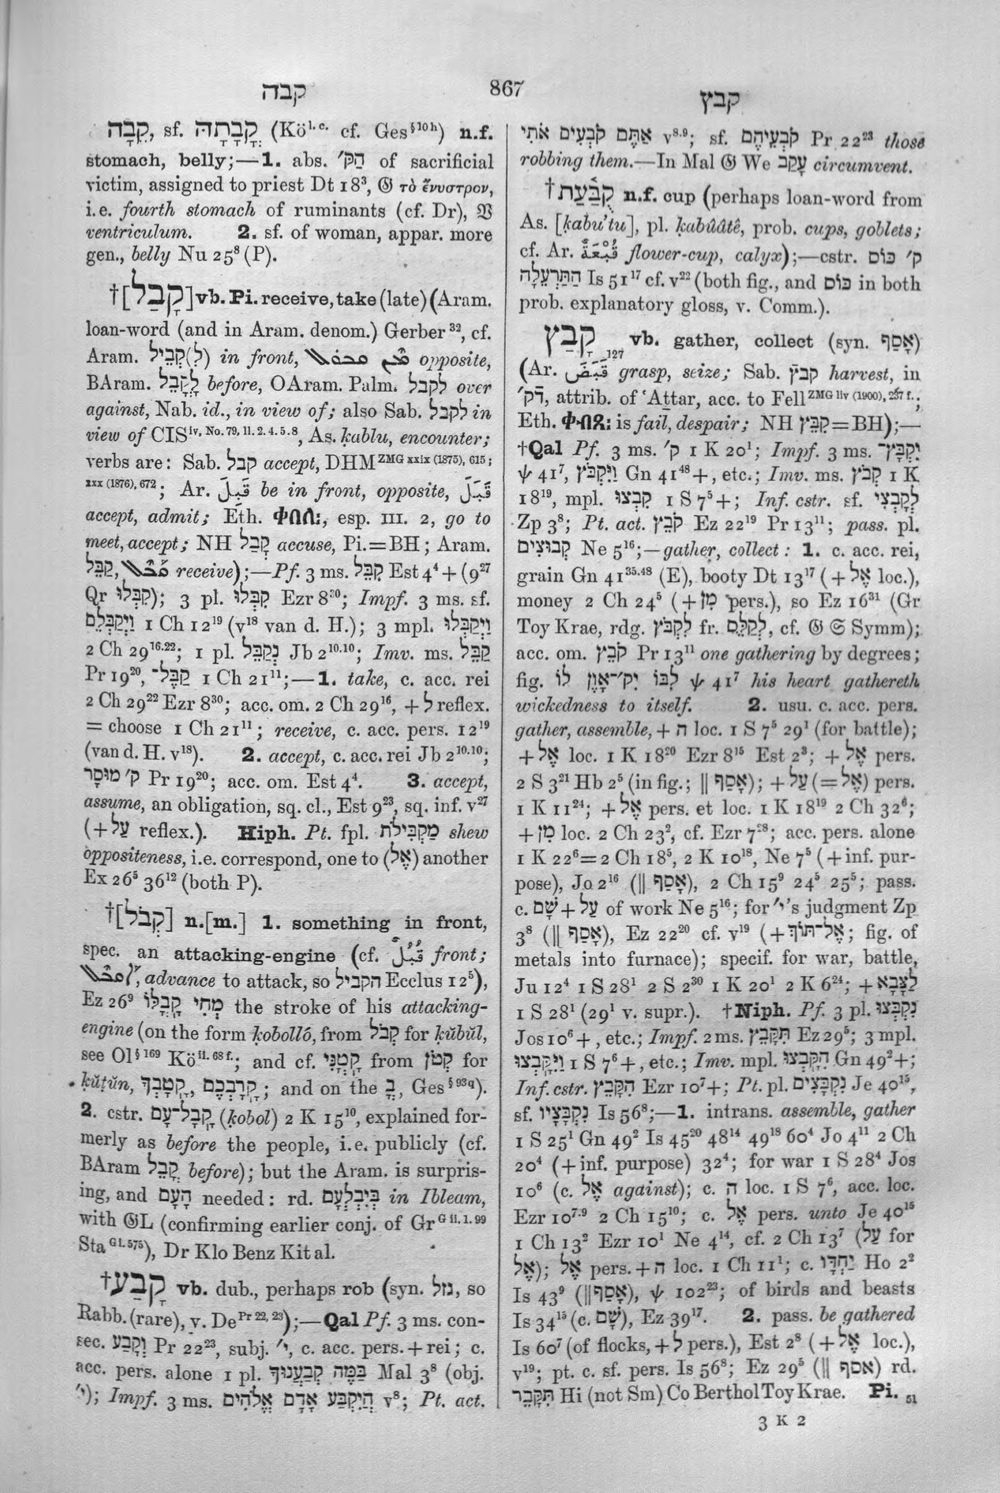 קבה
867
קבץ
קֵבָה, sf. קֳבָתָהּ (Kö l.c. cf. Ges §10h) n.f.
stomach, belly;—1. abs. הַקֵּ׳ of sacrificial
victim, assigned to priest Dt 18³, 𝔊 τὸ ἔνυστρον,
i.e. fourth stomach of ruminants (cf. Dr), 𝔙
ventriculum. 2. sf. of woman, appar. more
gen., belly Nu 25⁸ (P).
†[קָבַל] vb. Pi. receive, take (late) (Aram.
loan-word (and in Aram. denom.) Gerber ³², cf.
Aram. (לְ)קֳבֵיל in front, opposite,
BAram. לָקֳבֵל before, OAram. Palm. לקבל over
against, Nab. id., in view of; also Sab. לקבל in
view of CIS iv, No. 79, 11. 2. 4. 5. 8, As. ḳablu, encounter;
verbs are: Sab. קבל accept, DHM ZMG xxix (1875), 615;
xxx (1876), 672; Ar. قَبَلَ be in front, opposite, قَبِلَ
accept, admit; Eth. ቀበለ፡, esp. III. 2, go to
meet, accept; NH קָבַל accuse, Pi.=BH; Aram.
קַבֵּל, receive);—Pf. 3 ms. קִבֵּל Est 4⁴ + (9²⁷
Qr קִבְּלוּ); 3 pl. קִבְּלוּ Ezr 8³⁰; Impf. 3 ms. sf.
וַיְקַבְּלֵם 1 Ch 12¹⁹ (v¹⁸ van d. H.); 3 mpl. וַיְקַבְּלוּ
2 Ch 29¹⁶·²²; 1 pl. נְקַבֵּל Jb 2¹⁰·¹⁰; Imv. ms. קַבֵּל
Pr 19²⁰, קַבֶּל־ 1 Ch 21¹¹;—1. take, c. acc. rei
2 Ch 29²² Ezr 8³⁰; acc. om. 2 Ch 29¹⁶, + לְ reflex.
= choose 1 Ch 21¹¹; receive, c. acc. pers. 12¹⁹
(van d. H. v¹⁸). 2. accept, c. acc. rei Jb 2¹⁰·¹⁰;
ק׳ מוּסָר Pr 19²⁰; acc. om. Est 4⁴. 3. accept,
assume, an obligation, sq. cl., Est 9²³, sq. inf. v²⁷
(+עַל reflex.). Hiph. Pt. fpl. מַקְבִּילֹת shew
oppositeness, i.e. correspond, one to (אֶל) another
Ex 26⁵ 36¹² (both P).
†[קֹבֶל] n.[m.] 1. something in front,
spec. an attacking-engine (cf. قُبُلٌ front;
advance to attack, so הקביל Ecclus 12⁵),
Ez 26⁹ מְחִי קָבֳלּוֹ the stroke of his attacking-
engine (on the form ḳobolló, from קֹבֶל for ḳŭbŭl,
see Ol §169 Kö ii. 68 f.; and cf. קָטֳנִּי from קֹטֶן for
ḳŭṭŭn, קָטָבְךָ, קָרָבְכֶם; and on the בֳ, Ges §93q).
2. cstr. קָבָל־עָם (ḳobol) 2 K 15¹⁰, explained for-
merly as before the people, i.e. publicly (cf.
BAram קֳבֵל before); but the Aram. is surpris-
ing, and הָעָם needed: rd. בְּיִבְלְעָם in Ibleam,
with 𝔊L (confirming earlier conj. of Gr G ii. 1. 99
Sta G I. 575), Dr Klo Benz Kit al.
†קָבַע vb. dub., perhaps rob (syn. גזל, so
Rabb. (rare), v. De Pr 22, 23);—Qal Pf. 3 ms. con-
sec. וְקָבַע Pr 22²³, subj. י׳, c. acc. pers. + rei; c.
acc. pers. alone 1 pl. בַּמֶּה קְבַעֲנוּךָ Mal 3⁸ (obj.
י׳); Impf. 3 ms. הֲיִקְבַּע אָדָם אֱלֹהִים v⁸; Pt. act.
אַתֶּם קֹבְעִים אֹתִי v⁸·⁹; sf. קֹבְעֵיהֶם Pr 22²³ those
robbing them.—In Mal 𝔊 We עקב circumvent.
†קֻבַּעַת n.f. cup (perhaps loan-word from
As. [ḳabu'tu], pl. ḳabûâtê, prob. cups, goblets;
cf. Ar. قُبْعَةٌ flower-cup, calyx);—cstr. ק׳ כּוֹס
הַתַּרְעֵלָה Is 51¹⁷ cf. v²² (both fig., and כּוֹס in both
prob. explanatory gloss, v. Comm.).
קָבַץ 127 vb. gather, collect (syn. אָסַף)
(Ar. قَبَضَ grasp, seize; Sab. קבץ harvest, in
דק׳, attrib. of ʿAṯtar, acc. to Fell ZMG liv (1900), 237 f.;
Eth. ቀብጸ፡ is fail, despair; NH קִבֵּץ=BH);—
†Qal Pf. 3 ms. ק׳ 1 K 20¹; Impf. 3 ms. יִקְבָּץ־
ψ 41⁷, וַיִּקְבֹּץ Gn 41⁴⁸+, etc.; Imv. ms. קְבֹץ 1 K
18¹⁹, mpl. קִבְצוּ 1 S 7⁵+; Inf. cstr. sf. לְקָבְצִי
Zp 3⁸; Pt. act. קֹבֵץ Ez 22¹⁹ Pr 13¹¹; pass. pl.
קְבוּצִים Ne 5¹⁶;—gather, collect: 1. c. acc. rei,
grain Gn 41³⁵·⁴⁸ (E), booty Dt 13¹⁷ (+אֶל loc.),
money 2 Ch 24⁵ (+מִן pers.), so Ez 16³¹ (Gr
Toy Krae, rdg. לִקְבֹּץ fr. לְקַלֵּס, cf. 𝔊 𝔖 Symm);
acc. om. קֹבֵץ Pr 13¹¹ one gathering by degrees;
fig. לִבּוֹ יִק׳־אָוֶן לוֹ ψ 41⁷ his heart gathereth
wickedness to itself. 2. usu. c. acc. pers.
gather, assemble, + ה loc. 1 S 7⁵ 29¹ (for battle);
+אֶל loc. 1 K 18²⁰ Ezr 8¹⁵ Est 2³; +אֶל pers.
2 S 3²¹ Hb 2⁵ (in fig.; ‖ אָסַף); +עַל (=אֶל) pers.
1 K 11²⁴; +אֶל pers. et loc. 1 K 18¹⁹ 2 Ch 32⁶;
+מִן loc. 2 Ch 23², cf. Ezr 7²⁸; acc. pers. alone
1 K 22⁶=2 Ch 18⁵, 2 K 10¹⁸, Ne 7⁵ (+inf. pur-
pose), Jo 2¹⁶ (‖ אָסַף), 2 Ch 15⁹ 24⁵ 25⁵; pass.
c. שָׁם + עַל of work Ne 5¹⁶; for י׳'s judgment Zp
3⁸ (‖ אָסַף), Ez 22²⁰ cf. v¹⁹ (+אֶל־תּוֹךְ; fig. of
metals into furnace); specif. for war, battle,
Ju 12⁴ 1 S 28¹ 2 S 2³⁰ 1 K 20¹ 2 K 6²⁴; +לַצָּבָא
1 S 28¹ (29¹ v. supr.). †Niph. Pf. 3 pl. נִקְבְּצוּ
Jos 10⁶+, etc.; Impf. 2 ms. תִּקָּבֵץ Ez 29⁵; 3 mpl.
וַיִּקָּבְצוּ 1 S 7⁶+, etc.; Imv. mpl. הִקָּבְצוּ Gn 49²+;
Inf. cstr. הִקָּבֵץ Ezr 10⁷+; Pt. pl. נִקְבָּצִים Je 40¹⁵,
sf. נִקְבָּצָיו Is 56⁸;—1. intrans. assemble, gather
1 S 25¹ Gn 49² Is 45²⁰ 48¹⁴ 49¹⁸ 60⁴ Jo 4¹¹ 2 Ch
20⁴ (+inf. purpose) 32⁴; for war 1 S 28⁴ Jos
10⁶ (c. אֶל against); c. ה loc. 1 S 7⁶, acc. loc.
Ezr 10⁷·⁹ 2 Ch 15¹⁰; c. אֶל pers. unto Je 40¹⁵
1 Ch 13² Ezr 10¹ Ne 4¹⁴, cf. 2 Ch 13⁷ (עַל for
אֶל); אֶל pers. + ה loc. 1 Ch 11¹; c. יַחְדָּו Ho 2²
Is 43⁹ (‖אָסַף), ψ 102²³; of birds and beasts
Is 34¹⁵ (c. שָׁם), Ez 39¹⁷. 2. pass. be gathered
Is 60⁷ (of flocks, +לְ pers.), Est 2⁸ (+אֶל loc.),
v¹⁹; pt. c. sf. pers. Is 56⁸; Ez 29⁵ (‖ אסף) rd.
תִּקָּבֵר Hi (not Sm) Co Berthol Toy Krae. Pi. 51
3 K 2